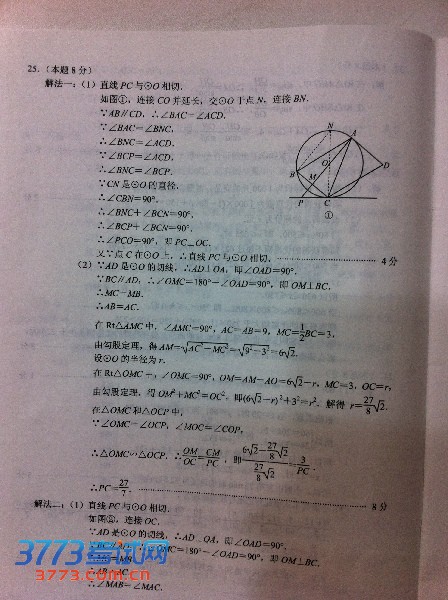 25.（本题8分）
解法一：（1）直线PC与⊙O相切.
如图①，连接CO并延长，交⊙O于点N，连接BN.
∵AB∥CD，∴∠BAC=∠ACD.
∵∠BAC=∠BNC，
∴∠BNC=∠ACD.
∵∠BCP=∠ACD，
∴∠BNC=∠BCP.
∵CN是⊙O的直径，
∴∠CBN=90°.
∴∠BNC+∠BCN=90°，
∴∠BCP+∠BCN=90°.
∴∠PCO=90°，即PC⊥OC.
又∵点C在⊙O上，∴直线PC与⊙O相切. 4分
N
A
O
B
M
D
P
C
①
（2）∵AD是⊙O的切线，∴AD⊥OA，即∠OAD=90°.
∵BC∥AD，∴∠OMC=180°-∠OAD=90°，即OM⊥BC.
∴MC=MB.
∴AB=AC.
在Rt△AMC中，∠AMC=90°，AC=AB=9，MC=1/2BC=3，
由勾股定理，得AM=√(AC²-MC²)=√(9²-3²)=6√2.
设⊙O的半径为r.
在Rt△OMC中，∠OMC=90°，OM=AM-AO=6√2-r，MC=3，OC=r，
由勾股定理，得OM²+MC²=OC²，即(6√2-r)²+3²=r². 解得 r=27/8√2.
在△OMC和△OCP中，
∵∠OMC=∠OCP，∠MOC=∠COP，
∴△OMC∽△OCP. ∴OM/OC=CM/PC，即(6√2-27/8√2)/(27/8√2)=3/PC.
∴PC=27/7. 8分
解法二：（1）直线PC与⊙O相切.
如图②，连接OC.
∵AD是⊙O的切线，∴AD⊥OA，即∠OAD=90°.
∠OMC=180°-∠OAD=90°，即OM⊥BC.
∴∠MAB=∠MAC.
3773考试网
3773.com.cn